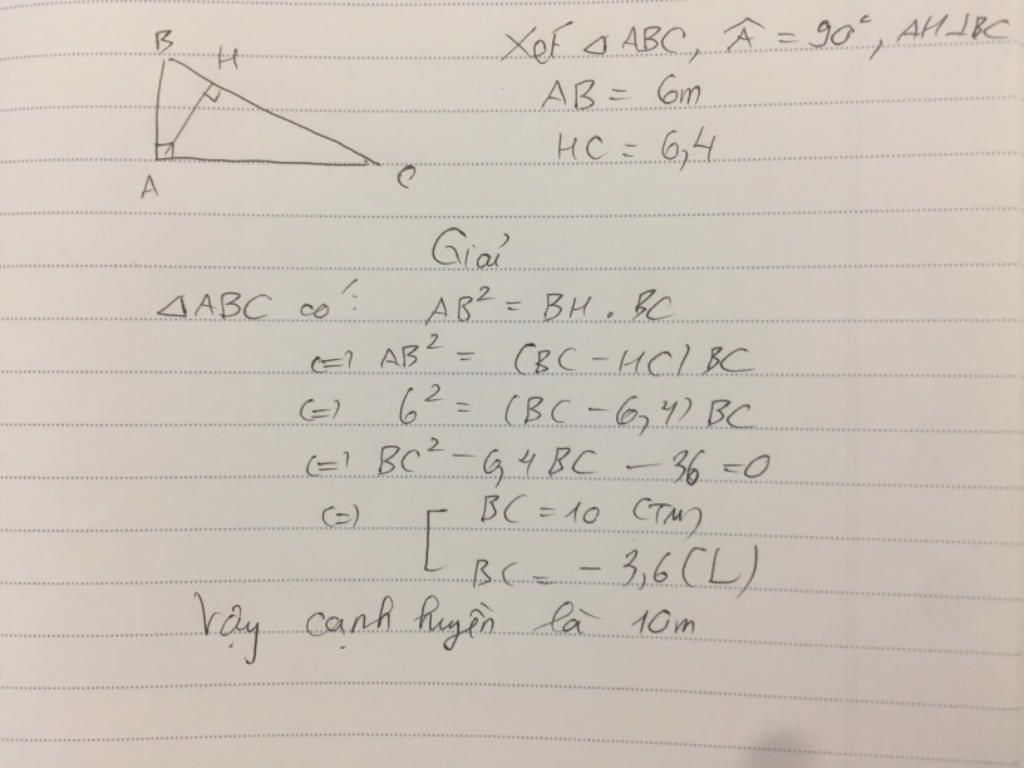 B
H
A
C
Xét △ ABC, Â = 90°, AH⊥BC
AB = 6m
HC = 6,4
Giải
△ABC có: AB² = BH . BC
(=) AB² = (BC – HC) BC
(=) 6² = (BC – 6,4) BC
(=) BC² – 6,4 BC – 36 = 0
(=) [ BC = 10 (TM)
BC = – 3,6 (L)
Vậy cạnh huyền là 10m